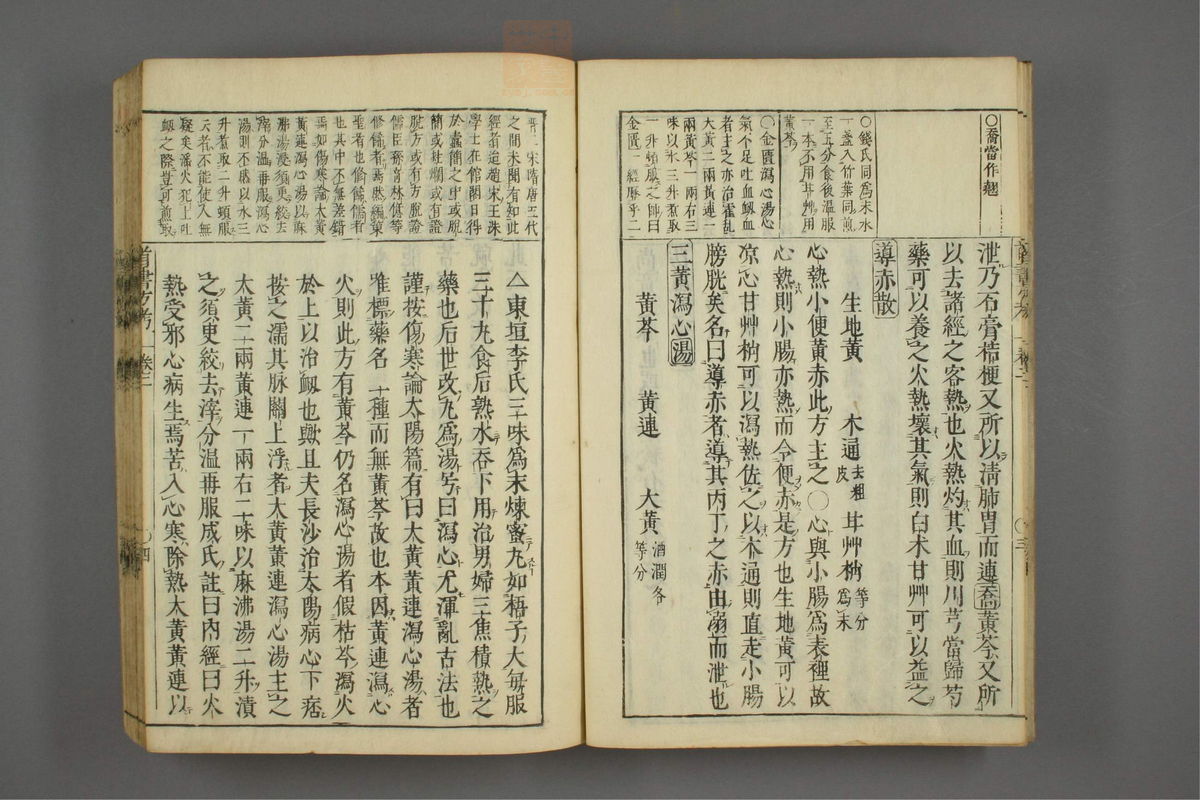 〇喬當作翹
〇錢氏同爲末水
一盞入竹葉同煎
至五分食後溫服
一本不用甘艸用
黃芩
〇金匱瀉心湯心
氣不足吐血衂血
者主之亦治霍乱
大黃二兩黃連一
兩黃芩一兩右三
味以水三升煮取
一升頓服之
金匱一經
泄乃石膏桔梗又所以清肺胃而連喬黃芩又所
以去諸經之客熱也火熱灼其血則川芎當歸芍
藥可以養之火熱壞其氣則白术甘艸可以益之
導赤散
生地黃 木通去粗皮 甘艸梢等分爲末
心熱小便黃赤此方主之〇心與小腸爲表裡故
心熱則小腸亦熱而令便赤是方也生地黃可以
凉心甘艸梢可以瀉熱佐之以木通則直走小腸
膀胱矣名曰導赤者導其丙丁之赤由溺而泄也
三黃瀉心湯
黃芩 黃連 大黃酒潤各等分
宋隋唐五代
之間未聞有如此
經者迨趙宋王洙
學士在館閣日得
於蠹簡之中或脫
簡或杜爛或有證
脫方或有方脫證
儒臣孫奇林億等
修
聖者也
也其中不無差錯
焉如傷寒論大黃
黃連瀉心湯以麻
沸湯漫須臾絞去
滓分溫再服瀉心
湯則不感以水三
升煮取一升頓服
夭者不能使人無
疑矣潘火犯上吐
衂之際豈可煎取
△東垣李氏三味爲末煉蜜丸如梧子大每服
三十九食后熟水吞下用治男婦三焦積熱之
藥也后世改丸爲湯号曰瀉心尤渾亂古法也
謹按傷寒論太陽篇有曰大黃黃連瀉心湯者
唯標藥名二種而無黃芩故也本因黃連瀉心
火則此方有黃芩仍名瀉心湯者假枯芩瀉火
於上以治衂也歟且夫長沙治太陽病心下痞
按之濡其脉關上浮者大黃黃連瀉心湯主之
大黃二兩黃連一兩右二味以麻沸湯二升漬
之須臾絞去滓分温再服成氏註曰內經曰火
熱受邪心病生焉苦入心寒除熱大黃黃連以
首書方考 卷二 〇四